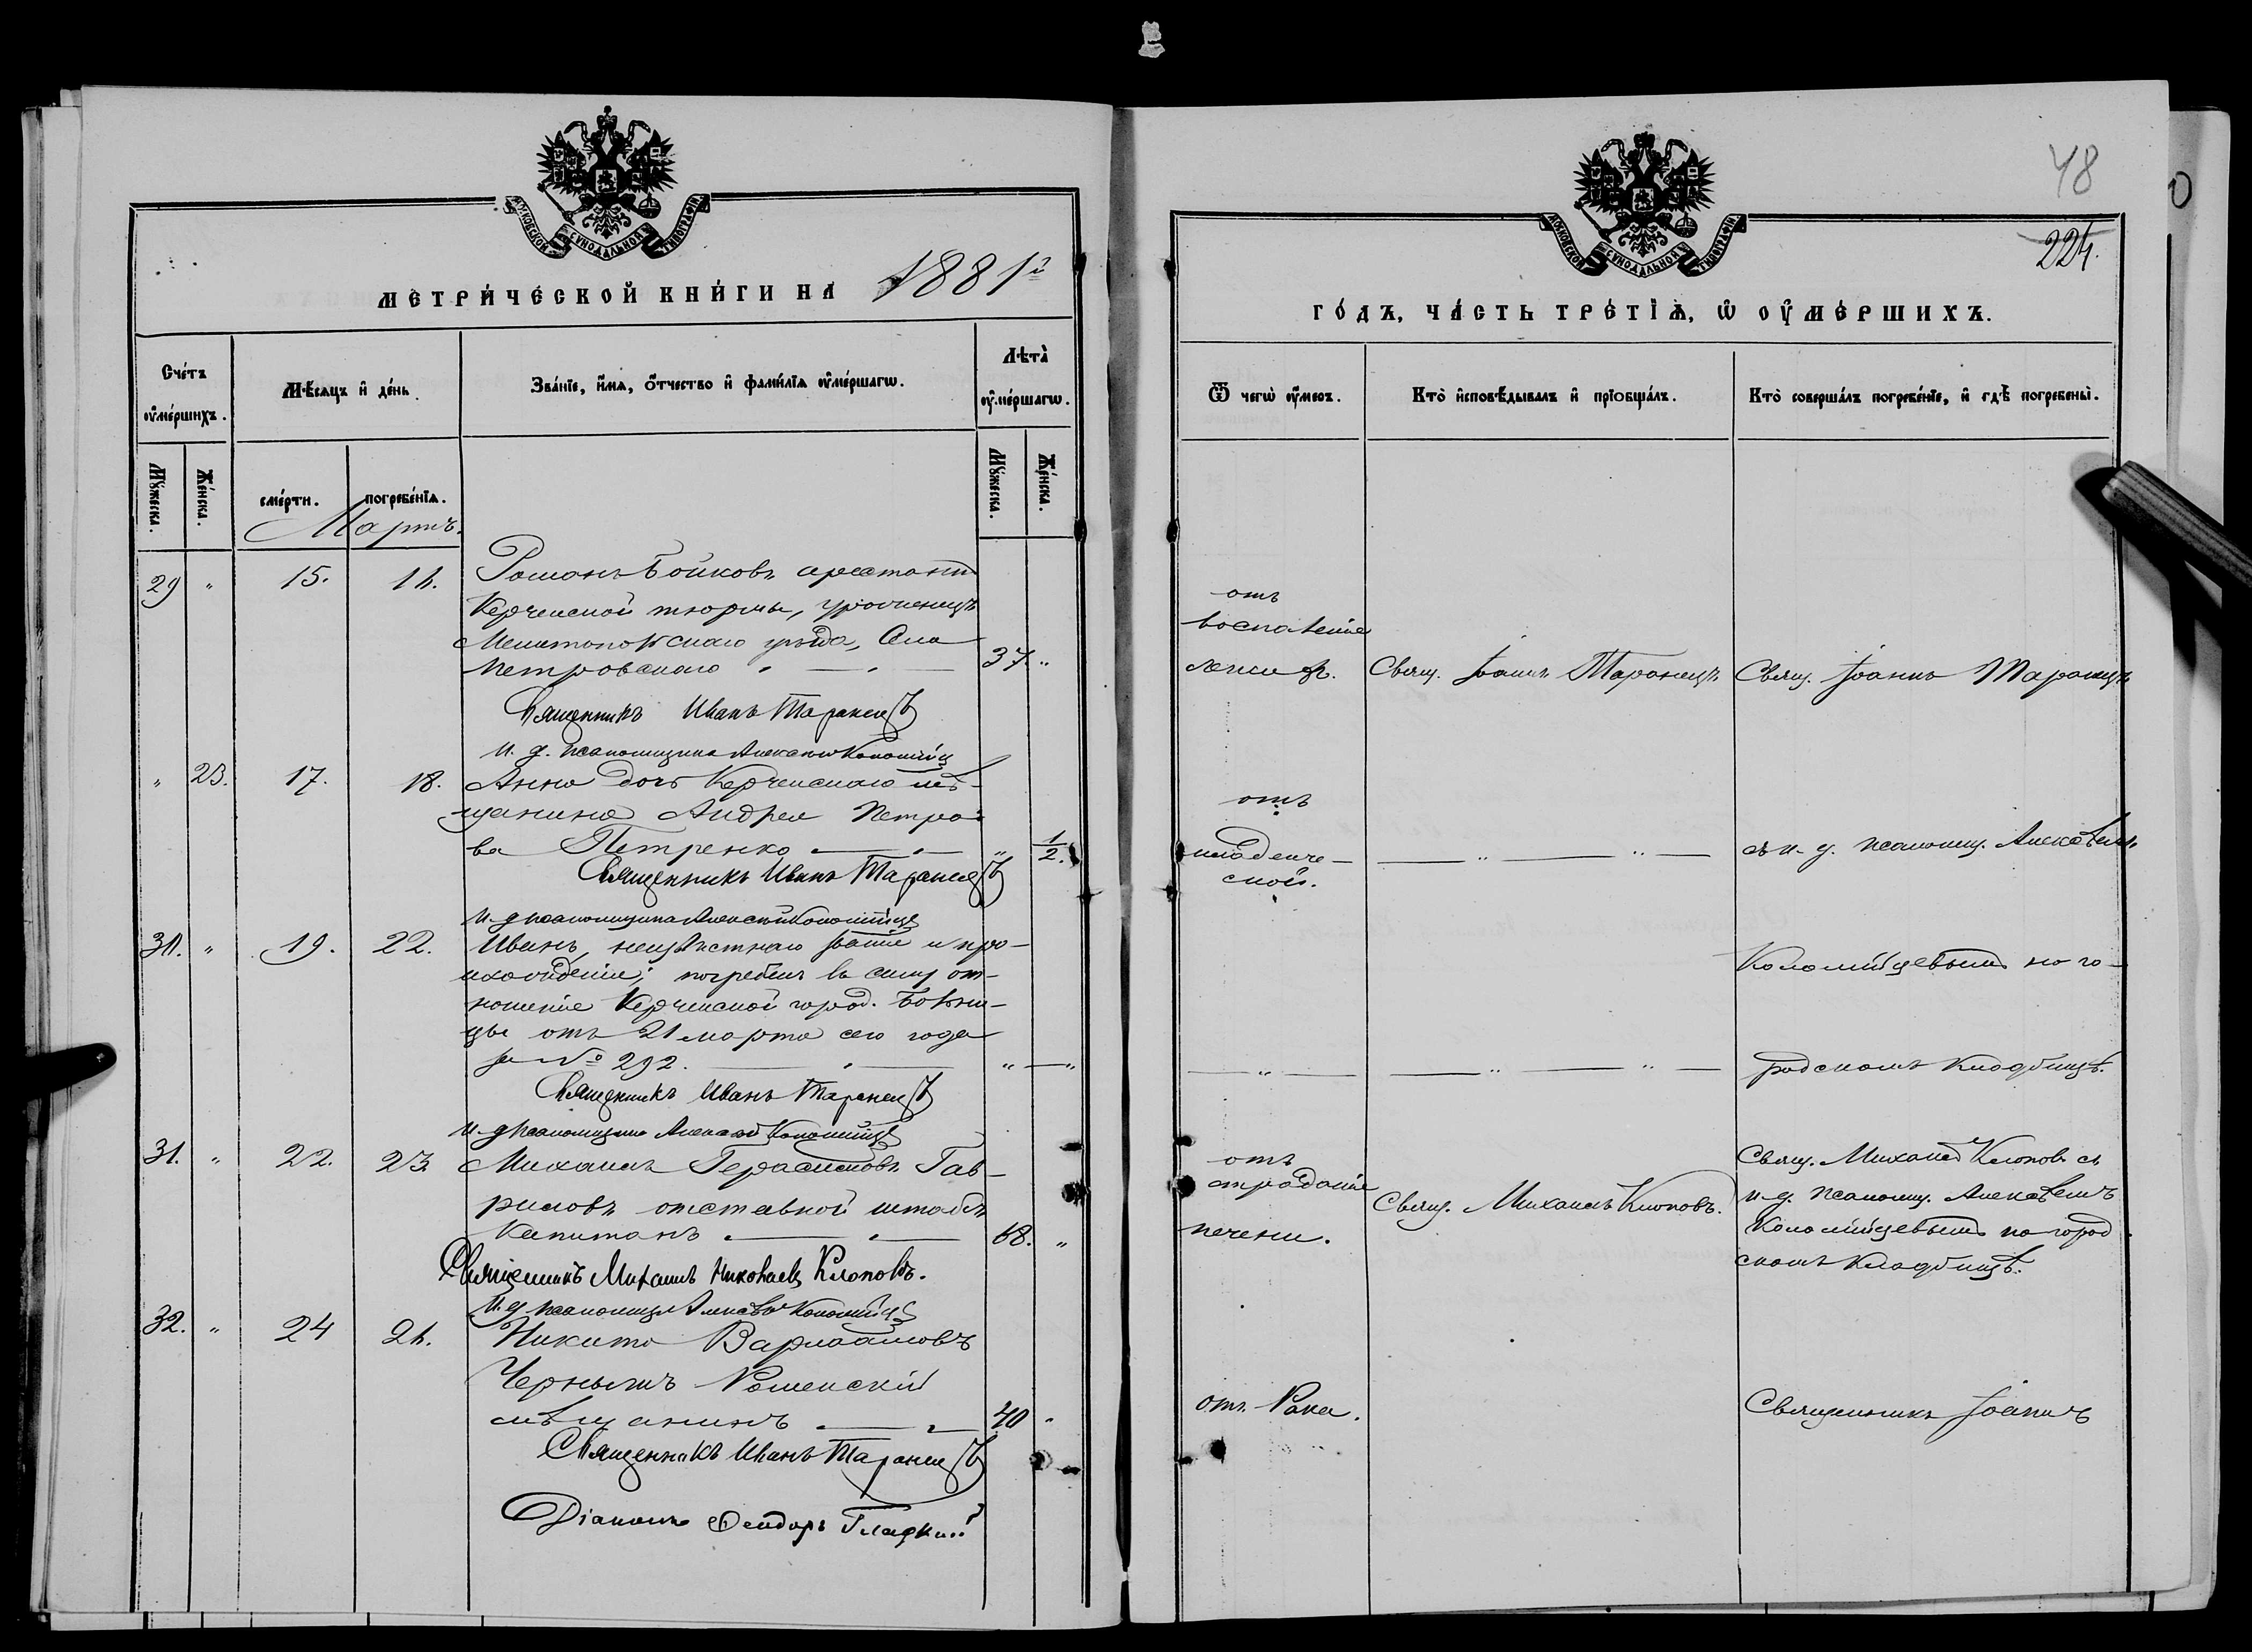 МОСКОВСКОЙ СУНОДАЛЬНОЙ ТИПОГРАФІИ
МЕТРИ́ЧЕСКОЙ КНИ́ГИ НА 1881й
Сче́тъ ᲂу҆ме́ршихъ.
Мѣ́сяцъ и҆ де́нь.
Зва́нїе, и҆́мѧ, ѻ҆́тчество и҆ фами́лїѧ ᲂу҆ме́ршагѡ.
Лѣта̀ ᲂу҆ме́ршагѡ.
Мꙋ́жеска.
Же́нска.
сме́рти.
погребе́нїѧ.
Мꙋ́жеска.
Же́нска.
Мартъ.
29 " 15. 16.
Романъ Бойковъ арестантъ
Керченской тюрьмы, уроженецъ
Мелитопольскаго уѣзда, Села
Петровскаго 37. "
Священникъ Иванъ Таранецъ
и. д. псаломщика Алексѣй Коломійцъ
" 23. 17. 18. Анна дочь Керченскаго мѣ-
щанина Андрея Петро-
ва Петренко " 1/2.
Священникъ Иванъ Таранецъ
и. д. псаломщика Алексѣй Коломійцъ
30. " 19. 22. Иванъ, неизвѣстнаго званія и про-
исхожденія; погребенъ въ силу от-
ношенія Керченской город. Больни-
цы отъ 21 марта сего года
за № 292. " — "
Священникъ Иванъ Таранецъ
и. д. псаломщика Алексѣй Коломійцъ
31. " 22. 23. Михаилъ Герасимовъ Гав-
риловъ отставной штабсъ
Капитанъ 68. "
Священникъ Михаилъ Николаевъ Клоповъ.
и. д. псаломщика Алексѣй Коломійцъ
32. " 24 26. Никита Варлаамовъ
Черныхъ
мѣщанинъ 40 "
Священникъ Иванъ Таранецъ
Діаконъ Феодоръ Гладкій
48
224.
МОСКОВСКОЙ СУНОДАЛЬНОЙ ТИПОГРАФІИ
ГО́ДЪ, ЧА́СТЬ ТРЕ́ТЇѦ, Ѡ҆ ОУ҆МЕ́РШИХЪ.
Ѿ чегѡ̀ ᲂу҆́меръ.
Кто̀ и҆сповѣ́дывалъ и҆ прїѡбща́лъ.
Кто̀ соверша́лъ погребе́нїе, и҆ гдѣ̀ погребены̀.
отъ
воспаленія
легкихъ. Свящ. Іоаннъ Таранецъ Свящ. Іоаннъ Таранецъ
отъ
младенче- съ и. д. псаломщ. Алексѣемъ
ской.
Коломійцевымъ на го-
родскомъ кладбищѣ.
отъ
страданія
печени.
Свящ. Михаилъ Клоповъ.
Свящ. Михаилъ Клоповъ съ
и. д. псаломщ. Алексѣемъ
Коломійцевымъ на город
скомъ кладбищѣ.
отъ Рака. Священникъ Іоаннъ